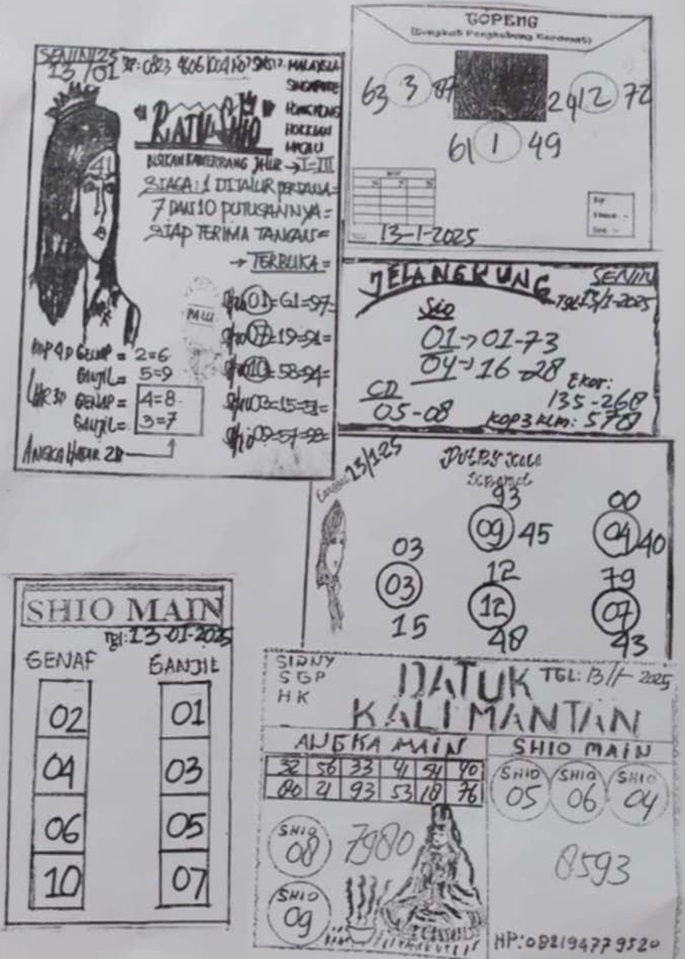 SENIN 25
13/01
MALAYSIA
SINGAPORE
HONGKONG
HOKKIAN
MACAU
" RATU SHIO "
→ I=III
SIAGA:1 DITALUR PERDANA=
7 DAN 10 PUTUSANNYA=
SIAP TERIMA TANGAN=
→ TERBUKA=
41
PAUL
Shio 01=61=97=
Shio 07=19=91=
Shio 10=58=94=
Shio 03=15=51=
Shio 09=57=98=
KOP 4D GENAP = 2=6
GANJIL= 5=9
GENAP = 4=8
GANJIL= 3=7
ANGKA HEBAR 2D
TOPENG
(Bungkati Pengkubung Keramat)
63 3 87
29 12 72
61 1 49
13-1-2025
JELANGKUNG
SENIN
TGL:13/1-2025
Sio
01→01-73
04→16-28
CD
05-08
Ekor:
135-268
KOP 3 KLM: 578
13/1-25
Putry Kaca
Keramat
93
09 45
00
04 40
03
03
15
12
12
48
79
07
43
SHIO MAIN
Tgl:13-01-2025
GENAF
GANJIL
02
01
04
03
06
05
10
07
SIDNY
SGP
HK
DATUK
KALIMANTAN
TGL: 13/1-2025
ANGKA MAIN
32 56 33 41 54 40
80 21 93 53 18 76
SHIO
08
7980
SHIO
09
SHIO MAIN
SHIO
05
SHIO
06
SHIO
04
8593
HP:082194779520